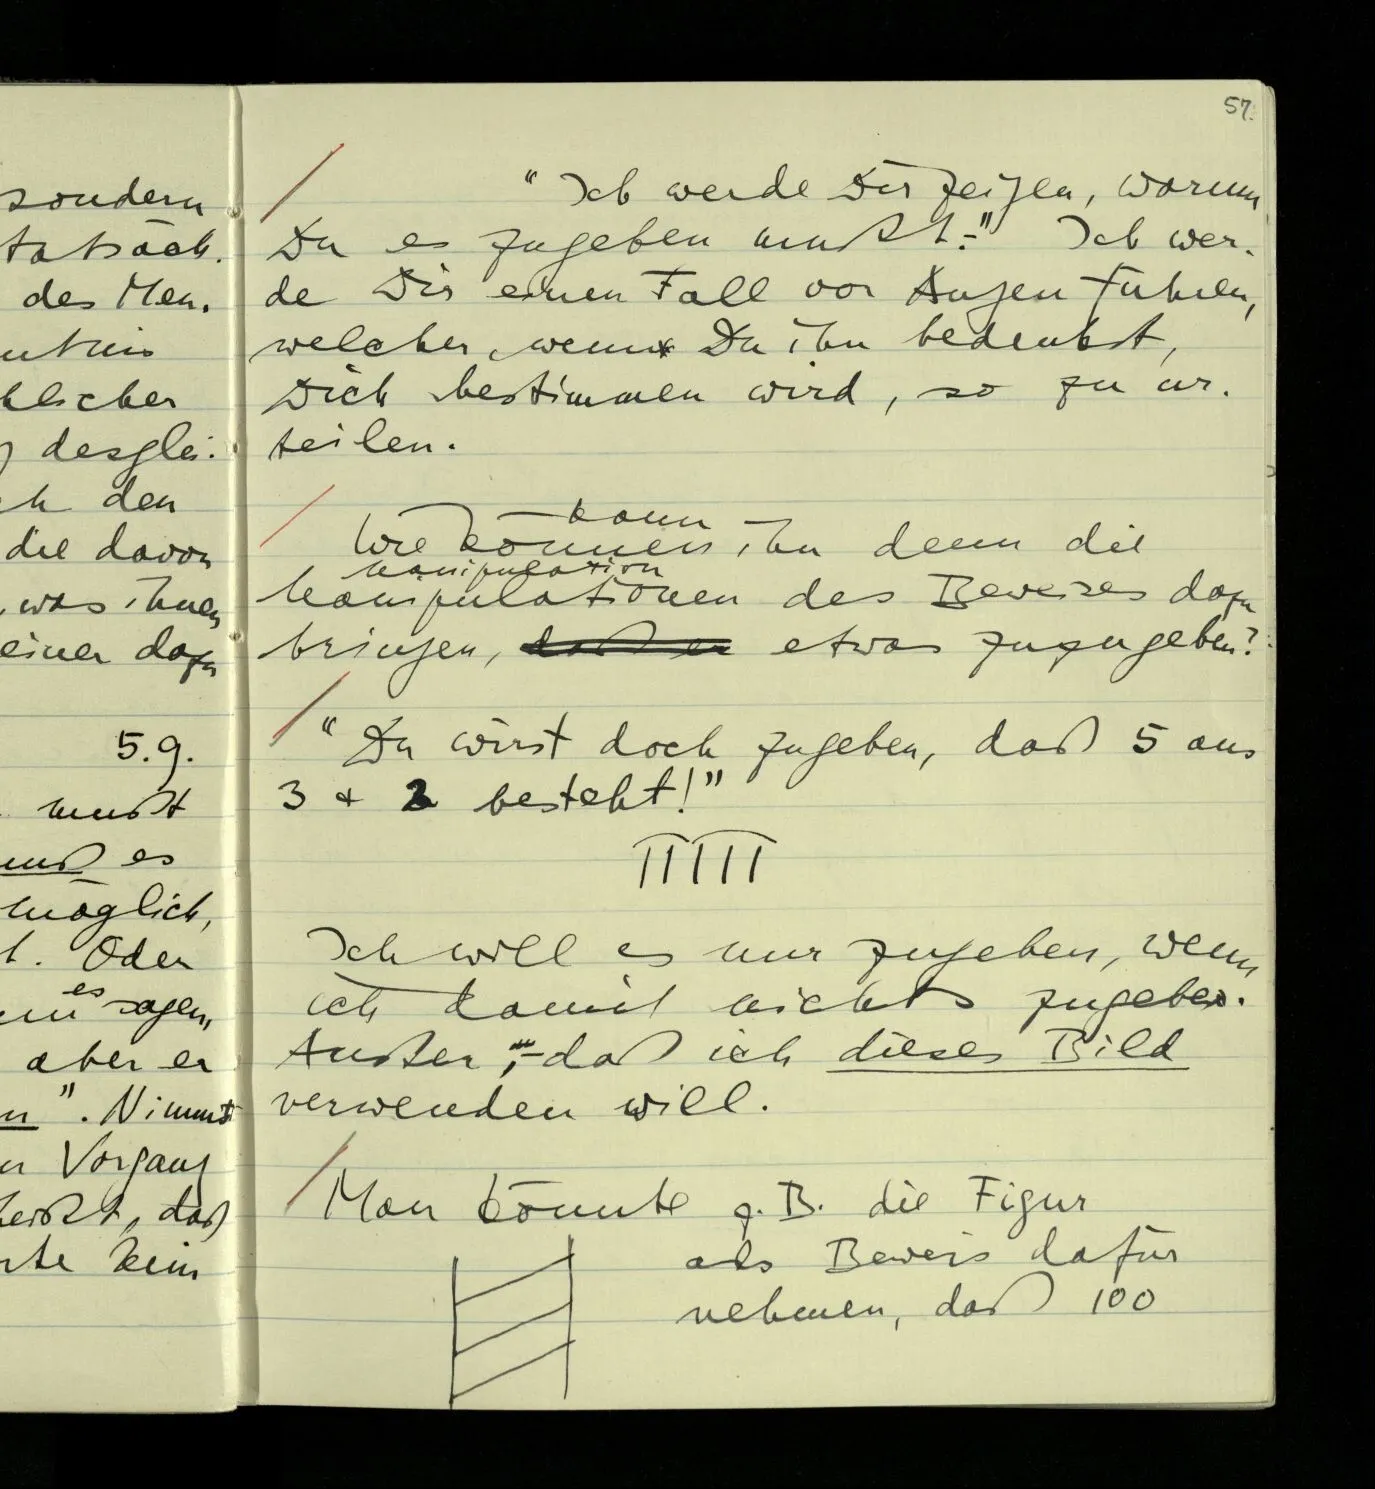 sondern
tatsäch.
des Men.
blicher
desglei.
den
die davon
was ihnen
einer dazu
5.9.
mußt
muß es
möglich,
Oder
es
sagen,
aber er
". Nimmt
Vorgang
heißt, daß
kein
57.
"Ich werde Dir zeigen, warum
Du es zugeben mußt.-" Ich wer-
de Dir einen Fall vor Augen führen,
welcher, wenn Du ihn bedenkst,
Dich bestimmen wird, so zu ur-
teilen.
kann
Wie können ihn denn die
Manipulation
Manipulationen des Beweises dazu
bringen, daß er etwas zuzugeben?
"Du wirst doch zugeben, daß 5 aus
3 + 2 besteht!"
Ich will es nur zugeben, wenn
ich damit nichts zugebe.
Außer, - daß ich dieses Bild
verwenden will.
Man könnte z.B. die Figur
als Beweis dafür
nehmen, daß 100